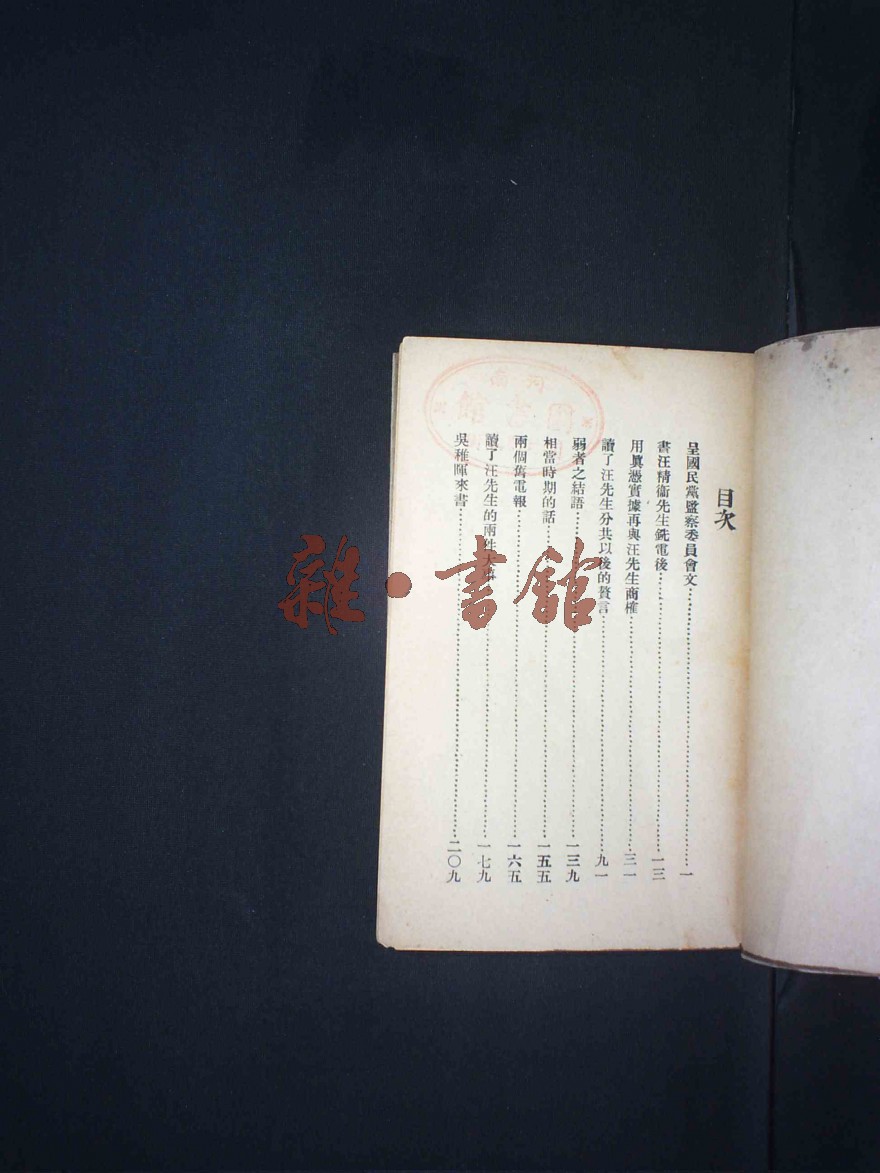 目次
呈國民黨監察委員會文……一
書汪精衞先生銑電後……一三
用眞憑實據再與汪先生商榷……三一
讀了汪先生分共以後的贅言……九一
弱者之結語……一三九
相當時期的話……一五五
兩個舊電報……一六五
讀了汪先生的兩件大事……一七九
吳稚暉來書……二〇九
雜·書館